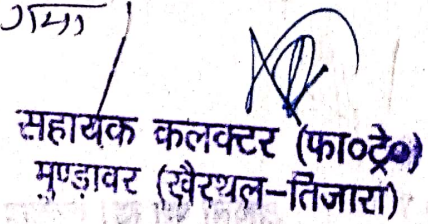 गया
सहायक कलक्टर (फा०ट्रे०)
मुण्डावर (खैरथल-तिजारा)